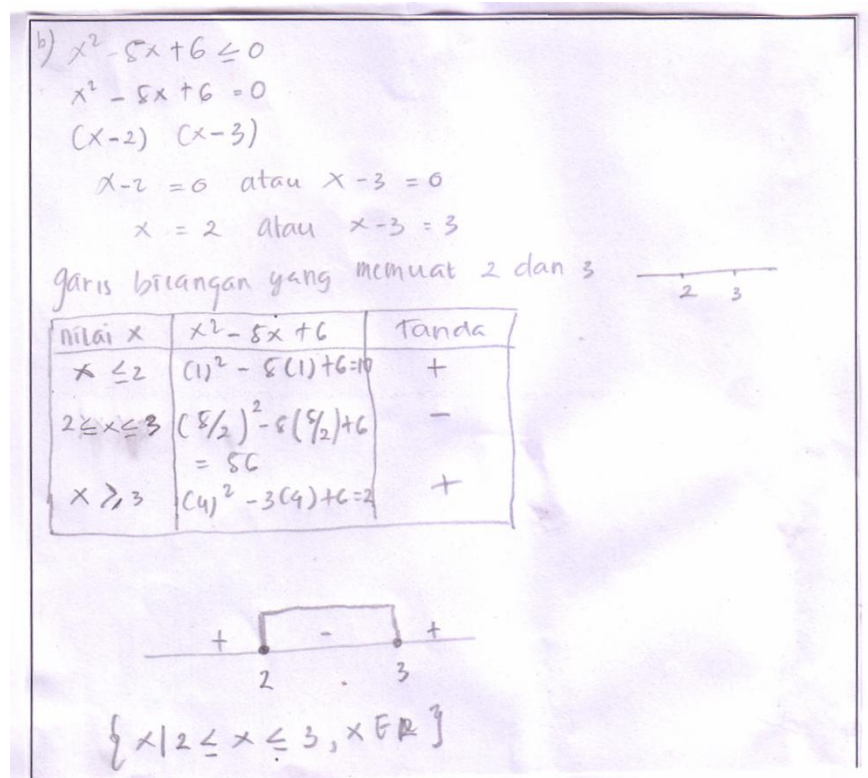 b) x² - 5x + 6 ≤ 0
x² - 5x + 6 = 0
(x-2) (x-3)
x-2 = 0 atau x-3 = 0
x = 2 atau x-3 = 3
garis bilangan yang memuat 2 dan 3
2 3
nilai x | x² - 5x + 6 | Tanda
x ≤ 2 | (1)² - 5(1)+6=10 | +
2 ≤ x ≤ 3 | (5/2)² - 5(5/2)+6 | -
= 56
x ≥ 3 | (4)² - 3(4)+6=2 | +
+ - +
2 3
{x|2 ≤ x ≤ 3, x ∈ R}